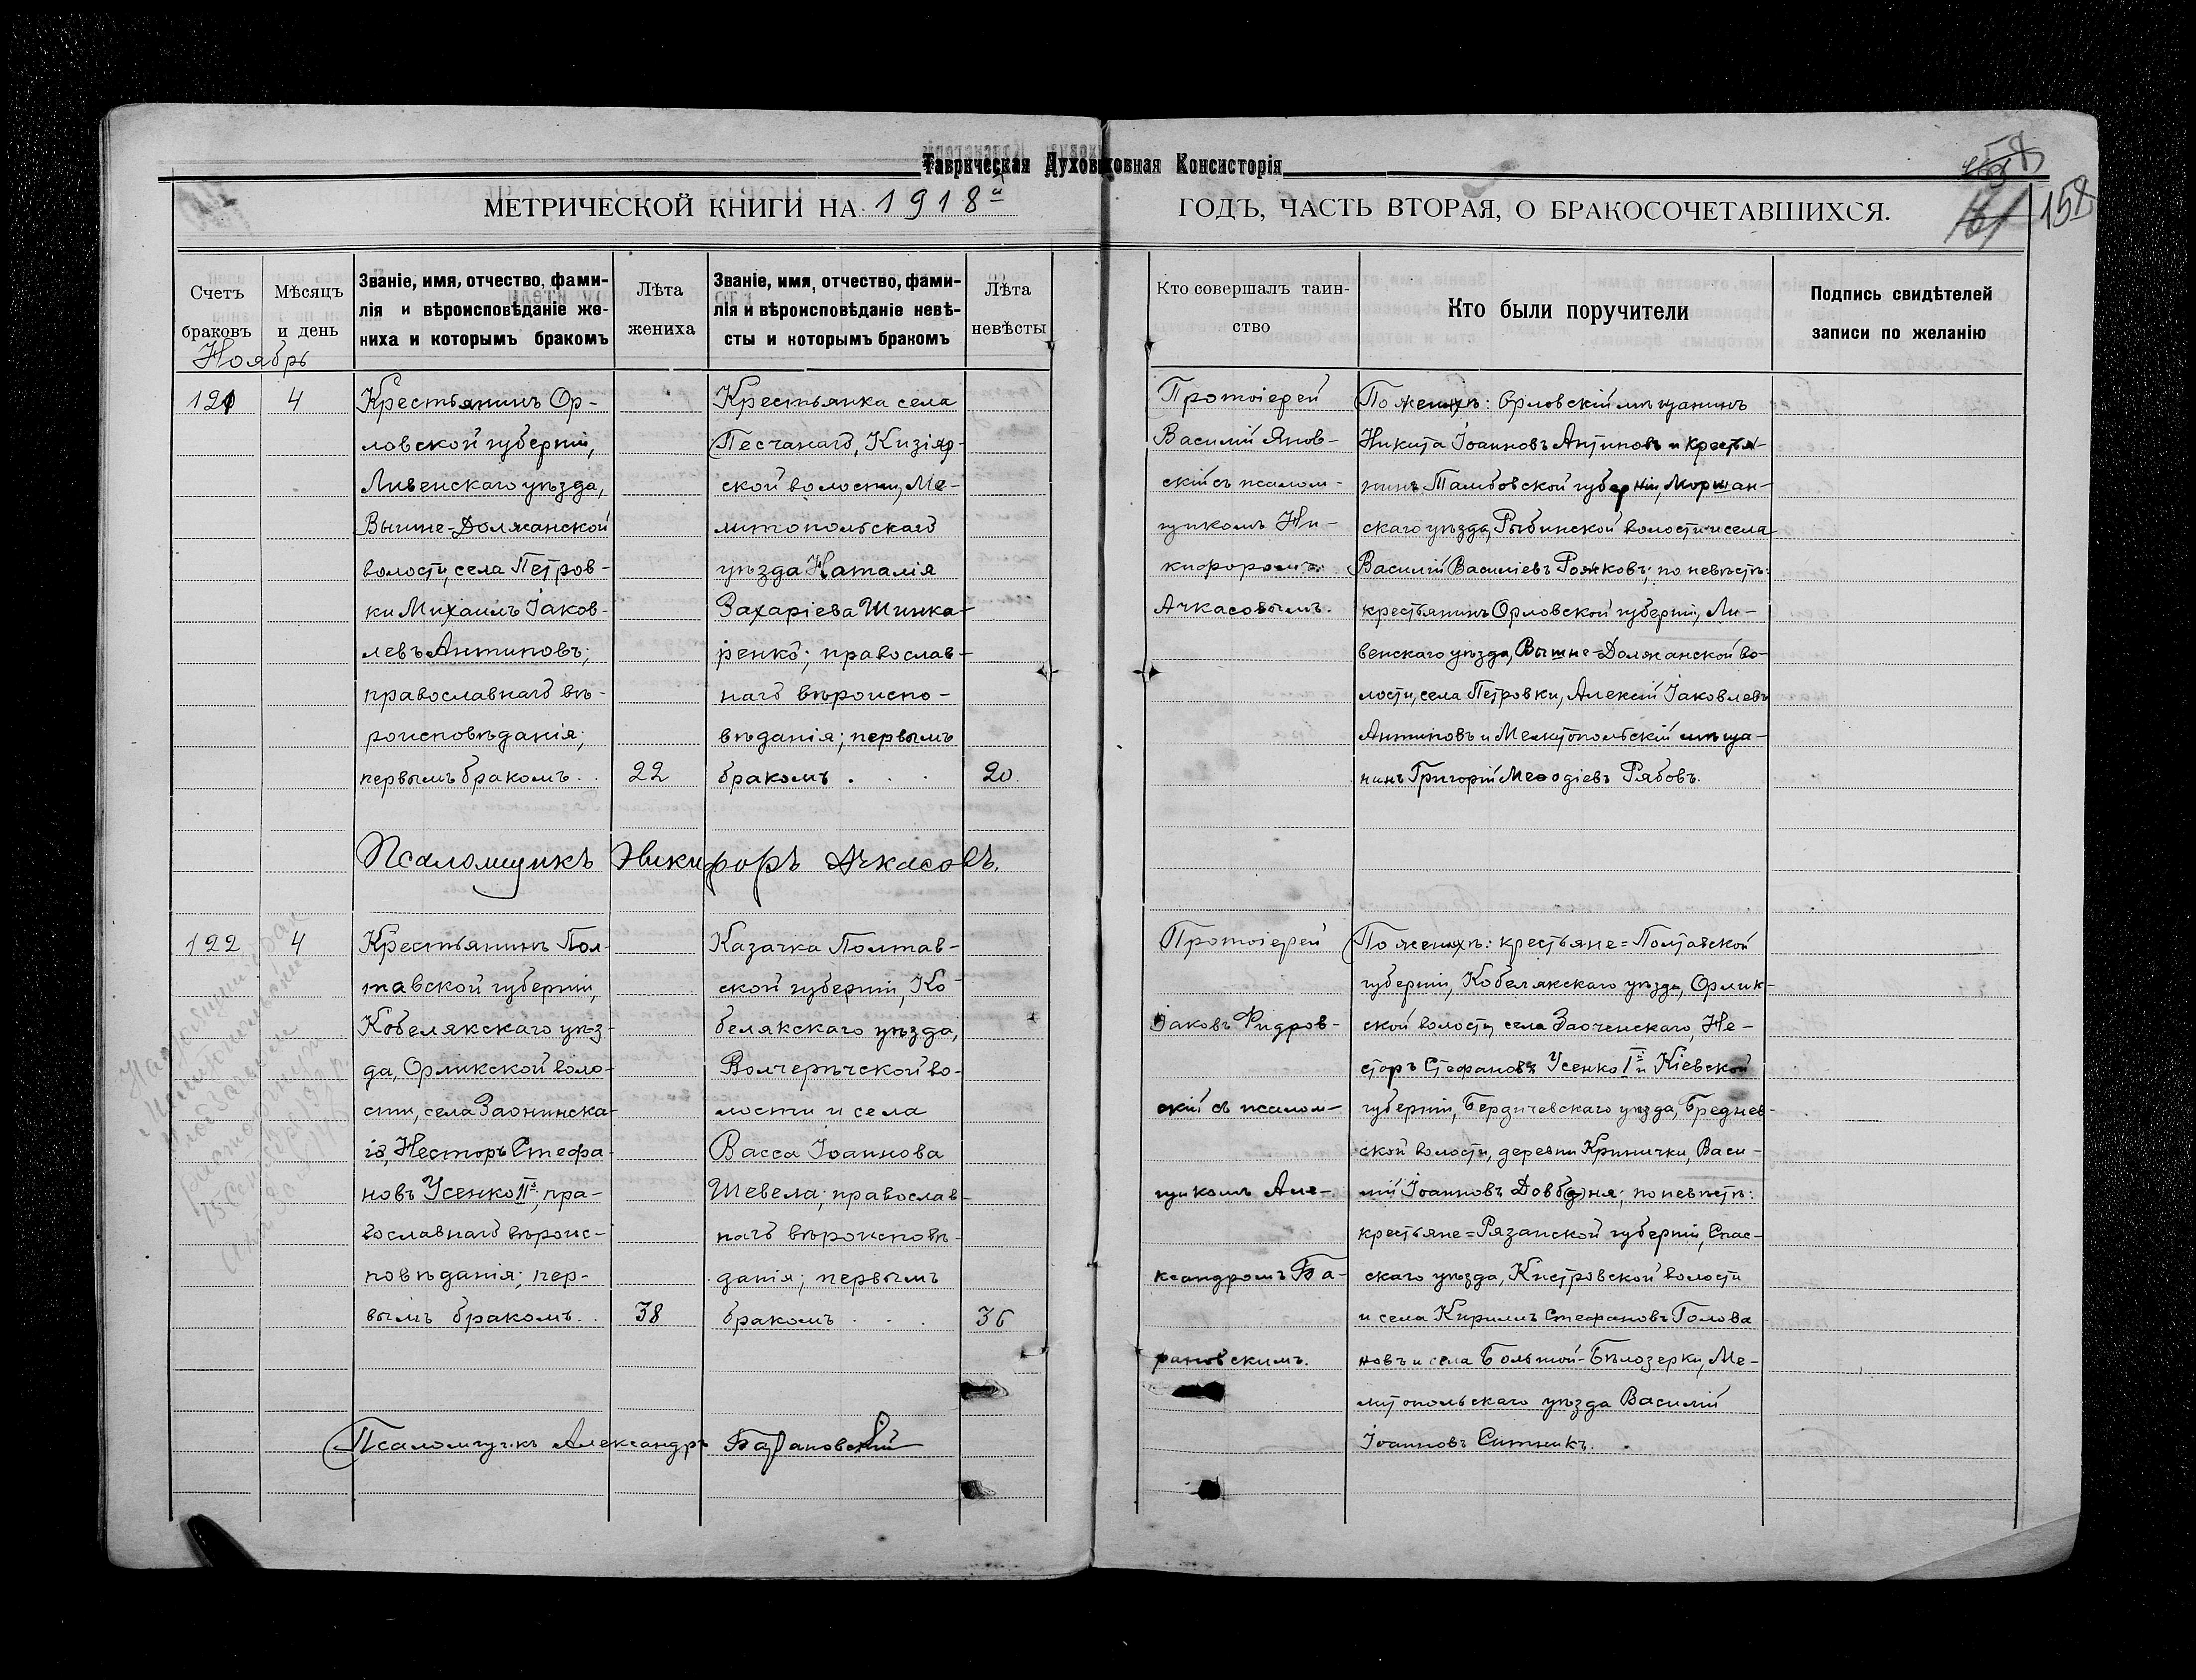 Таврическая Духовная Консисторія
МЕТРИЧЕСКОЙ КНИГИ НА 1918й
ГОДЪ, ЧАСТЬ ВТОРАЯ, О БРАКОСОЧЕТАВШИХСЯ.
158
Счетъ браковъ
Мѣсяцъ и день
Званіе, имя, отчество, фами-
лія и вѣроисповѣданіе же-
ниха и которымъ бракомъ
Лѣта жениха
Званіе, имя, отчество, фами-
лія и вѣроисповѣданіе невѣ-
сты и которымъ бракомъ
Лѣта невѣсты
Кто совершалъ таин-
ство
Кто были поручители
Подпись свидѣтелей
записи по желанію
Ноябрь
121
4
Крестьянинъ Ор-
ловской губерніи,
Ливенскаго уѣзда,
Вышне-Должанской
волости, села Петров-
ки Михаилъ Іаков-
левъ Антиповъ;
православнаго вѣ-
роисповѣданія;
первымъ бракомъ . .
22
Крестьянка села
Песчанаго, Кизіяр-
ской волости, Ме-
литопольскаго
уѣзда Наталія
Захаріева Шинка-
ренко; православ-
наго вѣроиспо-
вѣданія; первымъ
бракомъ . . .
20.
Протоіерей
Василій Янов-
скій съ псалом-
щикомъ Ни-
кифоромъ
Ачкасовымъ.
По женихѣ: Орловскій мѣщанинъ
Никита Іоанновъ Антиповъ и крестья-
нинъ Тамбовской губерніи, Моршан-
скаго уѣзда, Рыбинской волости и села
Василій Василіевъ Рожковъ; по невѣстѣ:
крестьянинъ Орловской губерніи, Ли-
венскаго уѣзда, Вышне-Должанской во-
лости, села Петровки, Алексій Іаковлевъ
Антиповъ и Мелитопольскій мѣща-
нинъ Григорій Меѳодіевъ Рябовъ.
Псаломщикъ Никифоръ Ачкасовъ.
122
4
Крестьянинъ Пол-
тавской губерніи,
Кобелякскаго уѣз-
да, Орликской воло-
сти, села Заонинска-
го, Несторъ Стефа-
новъ Усенко IIй; пра-
вославнаго вѣроис-
повѣданія; пер-
вымъ бракомъ . .
38
Казачка Полтав-
ской губерніи, Ко-
белякскаго уѣзда,
Волчерѣчской во-
лости и села
Васса Іоаннова
Шевела; православ-
наго вѣроисповѣ-
данія; первымъ
бракомъ . . .
36
Протоіерей
Іаковъ Фидров-
скій съ псалом-
щикомъ Але-
ксандромъ Ба-
рановскимъ.
По женихѣ: крестьяне = Полтавской
губерніи, Кобелякскаго уѣзда, Орлик-
ской волости, села Заоченскаго, Не-
сторъ Стефановъ Усенко Iй и Кіевской
губерніи, Бердичевскаго уѣзда, Бреднев-
ской волости, деревни Кринички, Васи-
лій Іоанновъ Довбня; по невѣстѣ:
крестьяне = Рязанской губерніи, Спас-
скаго уѣзда, Кистровской волости
и села Кириллъ Стефановъ Голова-
новъ и села Большой-Бѣлозерки, Ме-
литопольскаго уѣзда Василій
Іоанновъ Ситникъ.
Псаломщикъ Александръ Барановскій